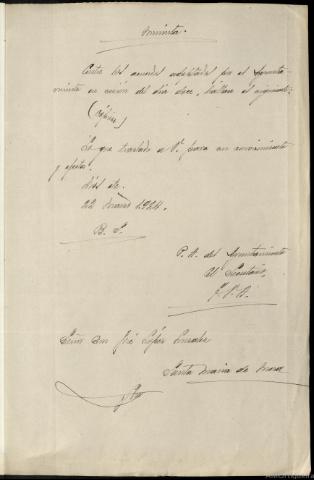 Minuta.
Entre los acuerdos adoptados por el Ayunta-
miento en sesión del día doce, hállase el siguiente:
(Cópiese)
Lo que traslado a Vd. para su conocimiento
y efectos.
Dios etc.
22 Marzo 1924.
P. A. del Ayuntamiento
El Secretario,
Señor Don José López
Santa María de